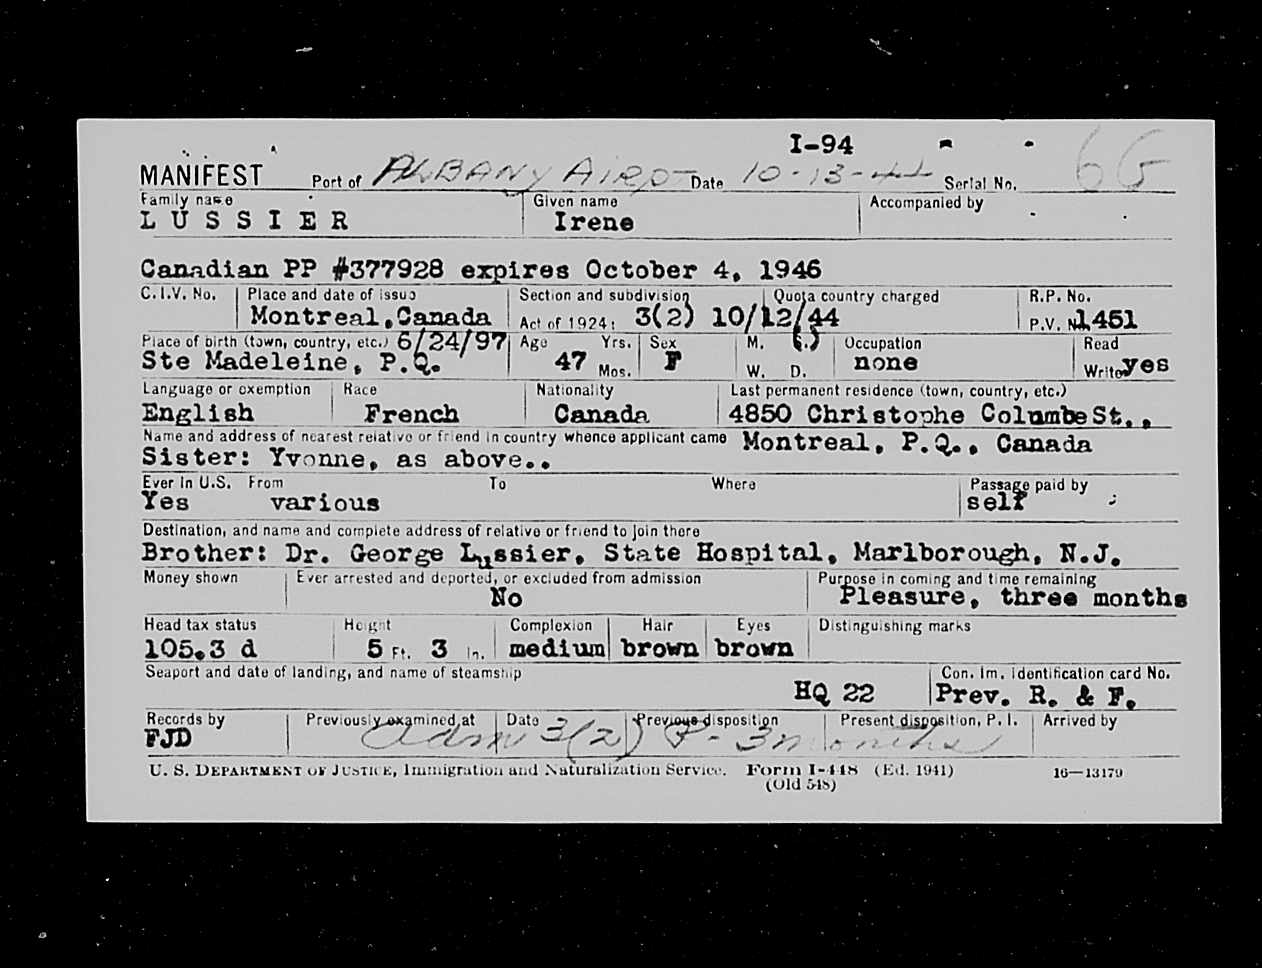 I-94
MANIFEST Port of ALBANY AIRPT Date 10-13-44 Serial No. 6G
Family name Given name Accompanied by
LUSSIER Irene
Canadian PP #377928 expires October 4, 1946
C.I.V. No. Place and date of issue Section and subdivision Quota country charged R.P. No.
Montreal, Canada Act of 1924: 3(2) 10/12/44 P.V. No. 1451
Place of birth (town, country, etc.) 6/24/97 Age Yrs. Sex M. (S.) Occupation Read
Ste Madeleine, P.Q. 47 Mos. F W. D. none Write yes
Language or exemption Race Nationality Last permanent residence (town, country, etc.)
English French Canada 4850 Christophe Colombe St.,
Name and address of nearest relative or friend in country whence applicant came Montreal, P.Q., Canada
Sister: Yvonne, as above..
Ever in U.S. From To Where Passage paid by
Yes various self
Destination, and name and complete address of relative or friend to join there
Brother: Dr. George Lussier, State Hospital, Marlborough, N.J.
Money shown Ever arrested and deported, or excluded from admission Purpose in coming and time remaining
No Pleasure, three months
Head tax status Height Complexion Hair Eyes Distinguishing marks
105.3 d 5 Ft. 3 In. medium brown brown
Seaport and date of landing, and name of steamship Con. Im. Identification card No.
HQ 22 Prev. R. & F.
Records by Previously examined at Date Previous disposition Present disposition, P. I. Arrived by
FJD Adm 3(2) P- 3 months
U. S. DEPARTMENT OF JUSTICE, Immigration and Naturalization Service. Form I-448 (Ed. 1941) 16—13179
(Old 548)